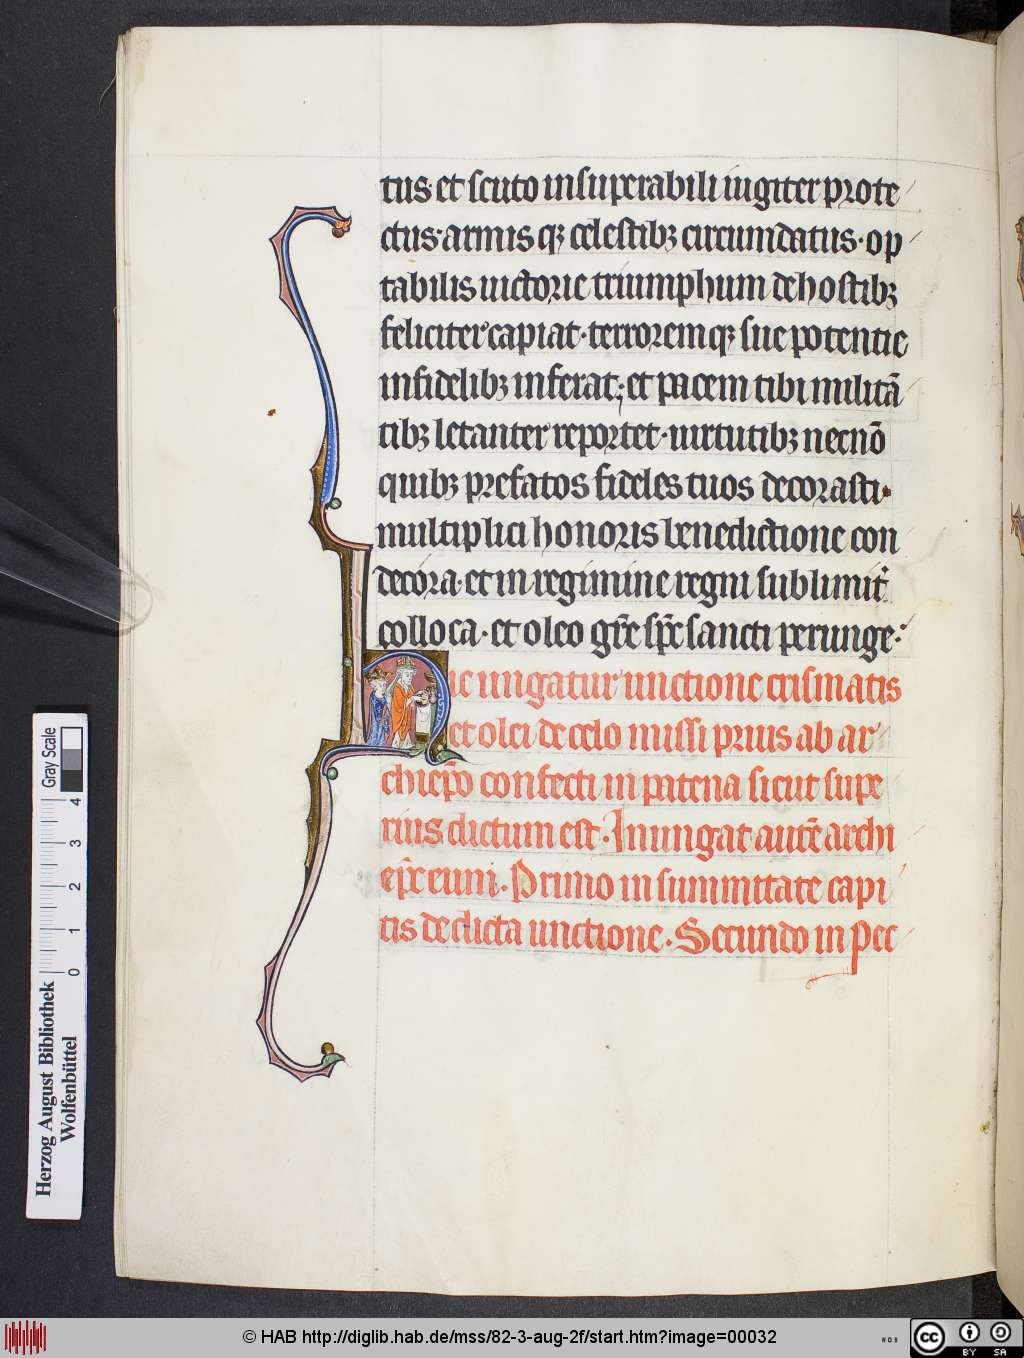 tus· et scuto insuperabili iugiter prote
ctus· armis qꝫ celestibꝫ circumdatus· op
tabilis uictorie triumphum de hostibꝫ
feliciter capiat· terroremqꝫ sue potentie
infidelibꝫ inferat; et pacem tibi militā
tibꝫ letanter reportet· uirtutibꝫ necnō
quibꝫ prefatos fideles tuos decorasti·
multiplici honoris benedictione con
decora· et in regimine regni sublimit̾
colloca· et oleo gr̄e sp̄c sancti perunge·
Hic ungatur unctione crismatis
et olei de celo missi prius ab ar
chiep̄o confecti in patena sicut supe
rius dictum est· Inungat autē archi
ep̄c eum. Primo in summitate capi
tis de dicta unctione. Secundo in pec
Herzog August Bibliothek
Wolfenbüttel
Gray Scale
0 1 2 3 4
© HAB http://diglib.hab.de/mss/82-3-aug-2f/start.htm?image=00032
WDB
cc BY SA